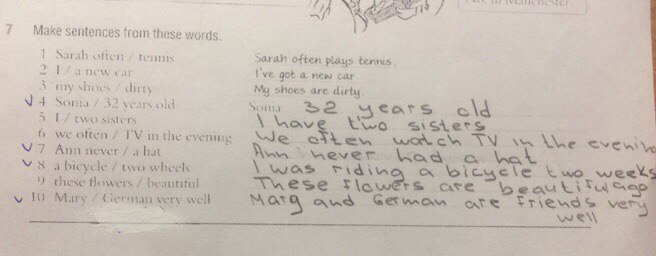 No, in Manchester.
7 Make sentences from these words.
1 Sarah often / tennis Sarah often plays tennis.
2 I / a new car I've got a new car
3 my shoes / dirty My shoes are dirty.
4 Sonia / 32 years old Sonia 32 years old
5 I / two sisters I have two sisters
6 we often / TV in the evening We often watch TV in the evening
7 Ann never / a hat Ann never had a hat
8 a bicycle / two wheels I was riding a bicycle two weeks ago
9 these flowers / beautiful These flowers are beautiful
10 Mary / German very well Marg and German are friends very
well